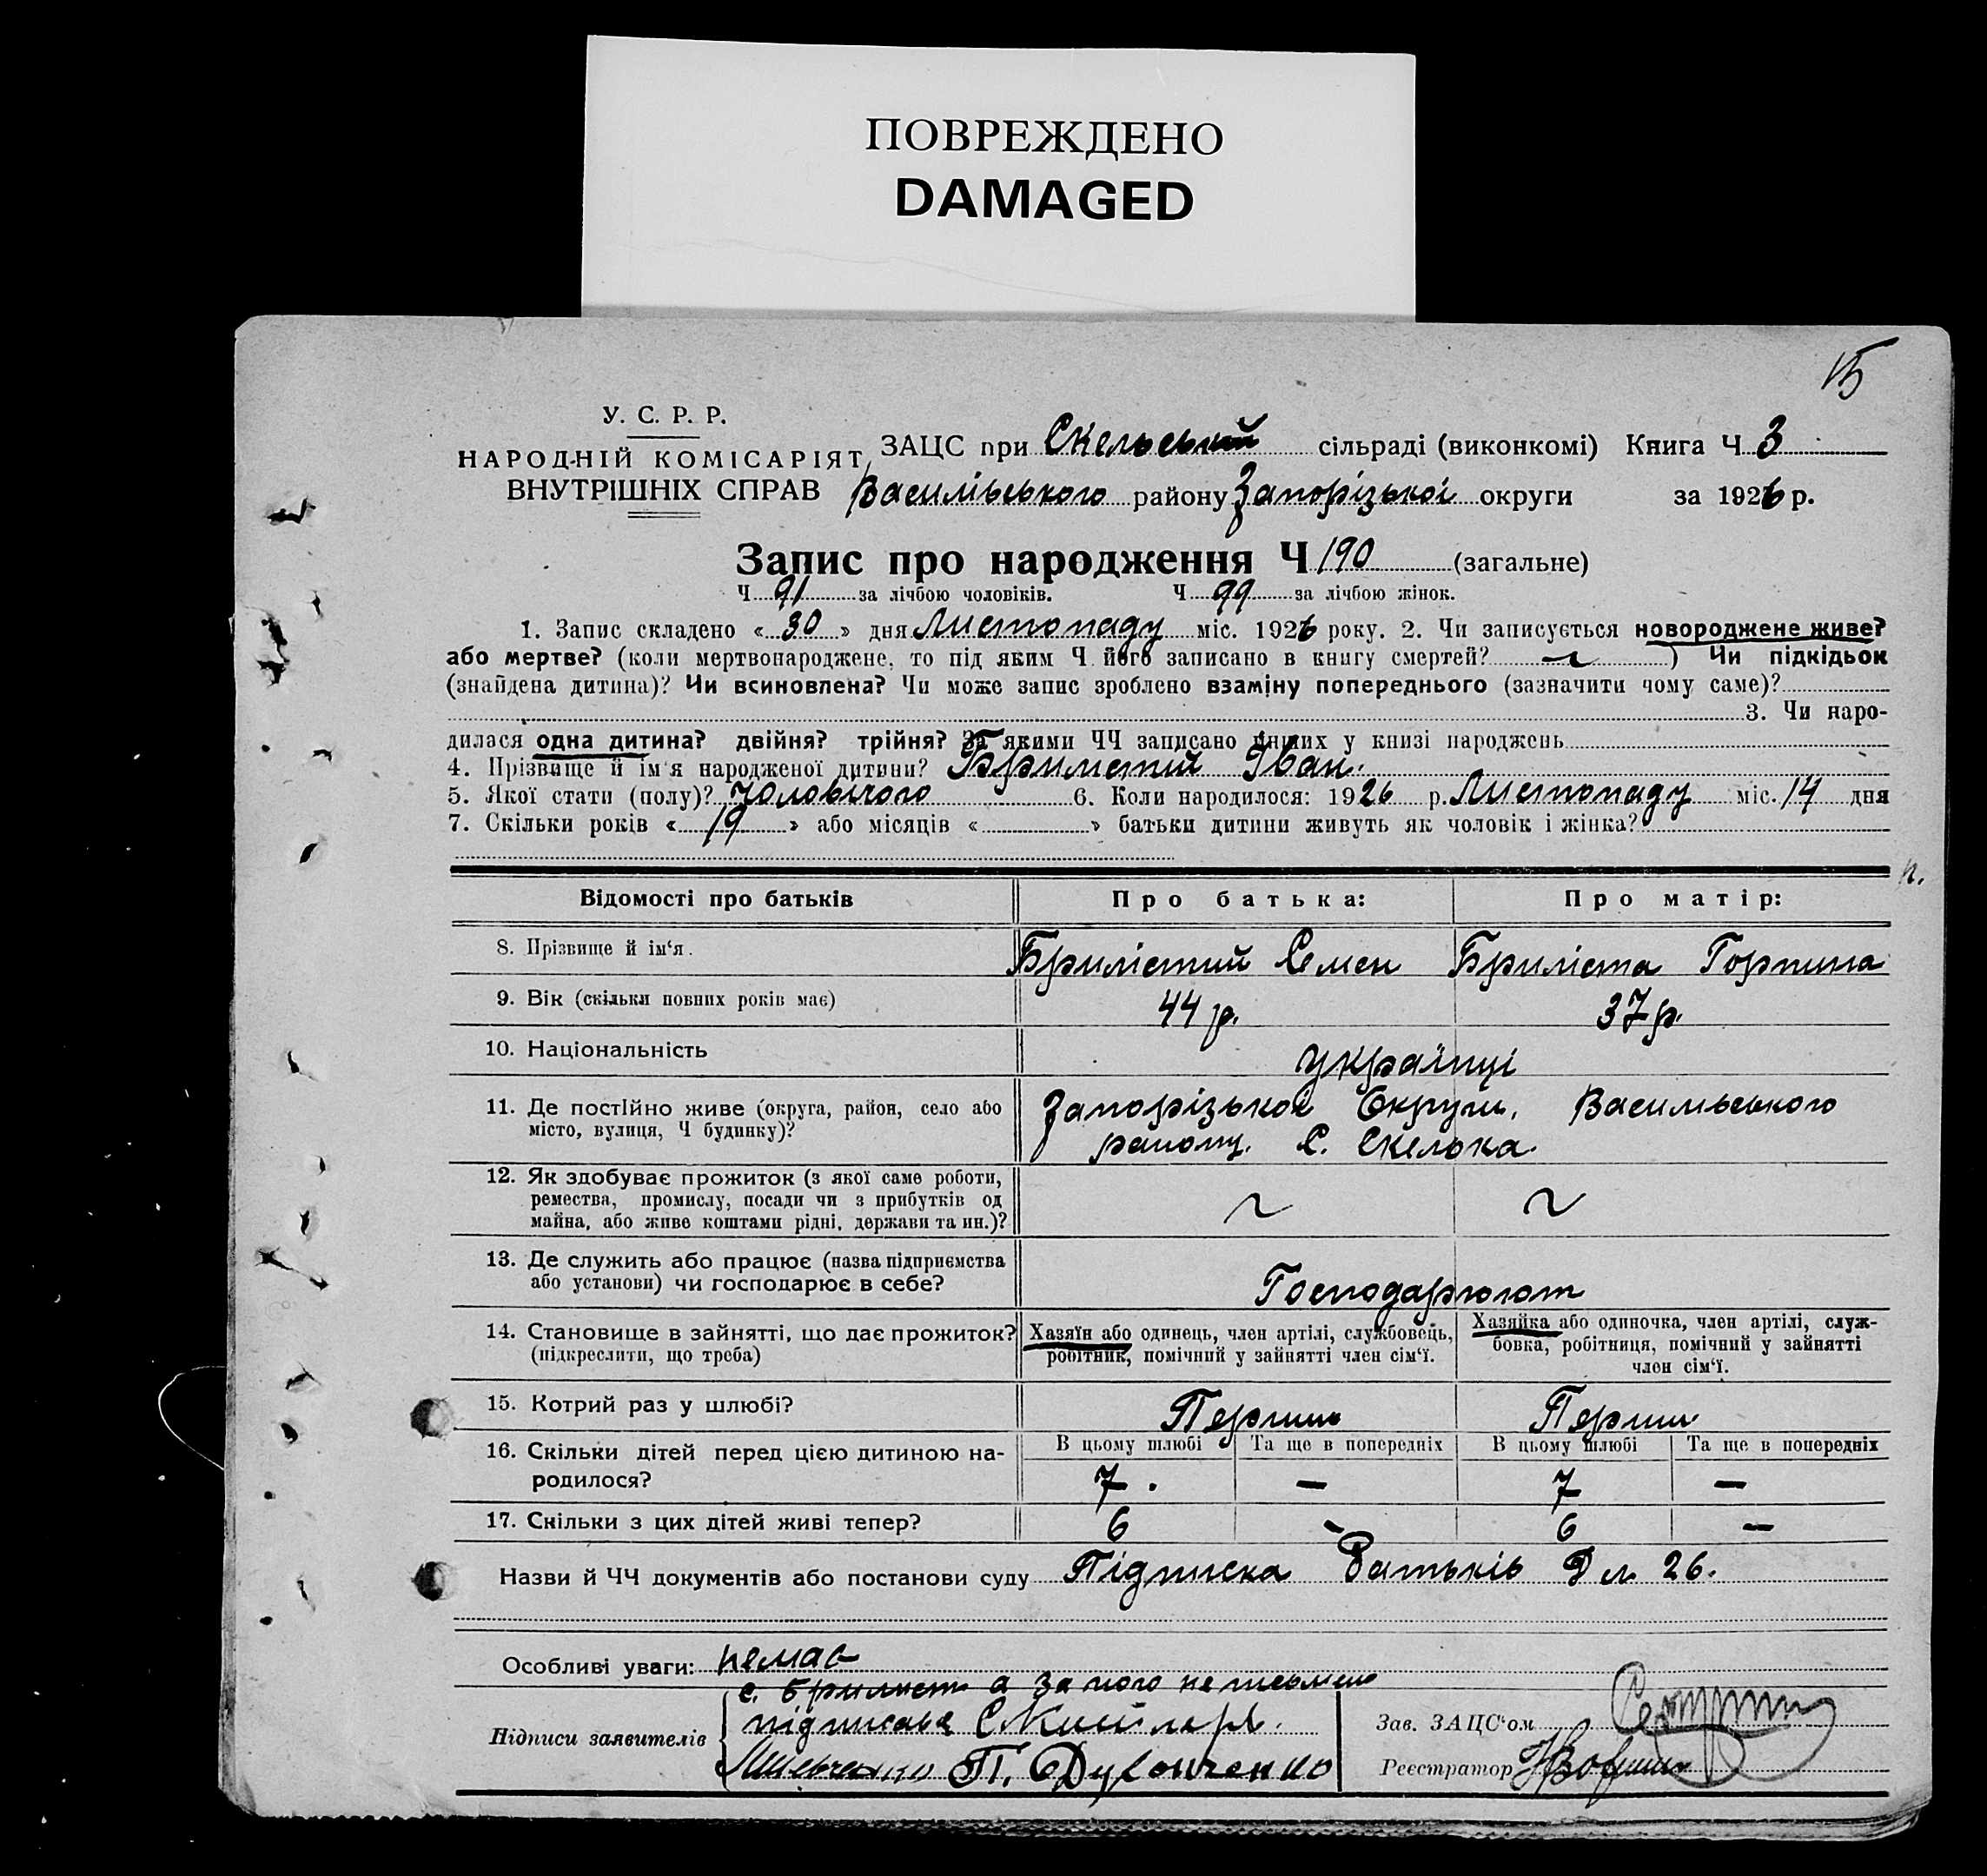 ПОВРЕЖДЕНО
DAMAGED
15
У. С. Р. Р.
НАРОДНІЙ КОМІСАРІЯТ
ВНУТРІШНІХ СПРАВ
ЗАЦС при Скельській сільраді (виконкомі) Книга Ч 3
Василівського району Запорізької округи за 1926 р.
Запис про народження Ч 190 (загальне)
Ч 91 за лічбою чоловіків. Ч 99 за лічбою жінок.
1. Запис складено « 30 » дня Листопаду міс. 1926 року. 2. Чи записується новороджене живе?
або мертве? (коли мертвонароджене, то під яким Ч його записано в книгу смертей? ) Чи підкідьок
(знайдена дитина)? Чи всиновлена? Чи може запис зроблено взаміну попереднього (зазначити чому саме)?
3. Чи наро-
дилася одна дитина? двійня? трійня? За якими ЧЧ записано инших у книзі народжень
4. Прізвище й ім'я народженої дитини? Брилистий Іван.
5. Якої стати (полу)? чоловічого 6. Коли народилося: 1926 р. Листопаду міс. 14 дня
7. Скільки років « 19 » або місяців « » батьки дитини живуть як чоловік і жінка?
Відомості про батьків Про батька: Про матір:
8. Прізвище й ім'я. Брилістий Семен Бриліста Горпина
9. Вік (скільки повних років має) 44 р. 37 р.
10. Національність українці
11. Де постійно живе (округа, район, село або
місто, вулиця, Ч будинку)? Запорізької Округи, Василівського
району. С. Скелька.
12. Як здобуває прожиток (з якої саме роботи,
ремества, промислу, посади чи з прибутків од
майна, або живе коштами рідні, держави та ин.)?
13. Де служить або працює (назва підприємства
або установи) чи господарює в себе? Господарюют
14. Становище в зайнятті, що дає прожиток?
(підкреслити, що треба)
Хазяїн або одинець, член артілі, службовець,
робітник, помічний у зайнятті член сім'ї.
Хазяйка або одиночка, член артілі, служ-
бовка, робітниця, помічний у зайнятті
член сім'ї.
15. Котрий раз у шлюбі? Перший Перший
16. Скільки дітей перед цією дитиною на-
родилося?
В цьому шлюбі Та ще в попередніх В цьому шлюбі Та ще в попередніх
7. — 7 —
17. Скільки з цих дітей живі тепер? 6 - 6 —
Назви й ЧЧ документів або постанови суду Підписка Батьків Д л 26.
Особливі уваги: немає
с. Брилист а за ного не письмен
Підписи заявителів підписав
П. Дудонченко
Зав. ЗАЦС'ом
Реєстратор